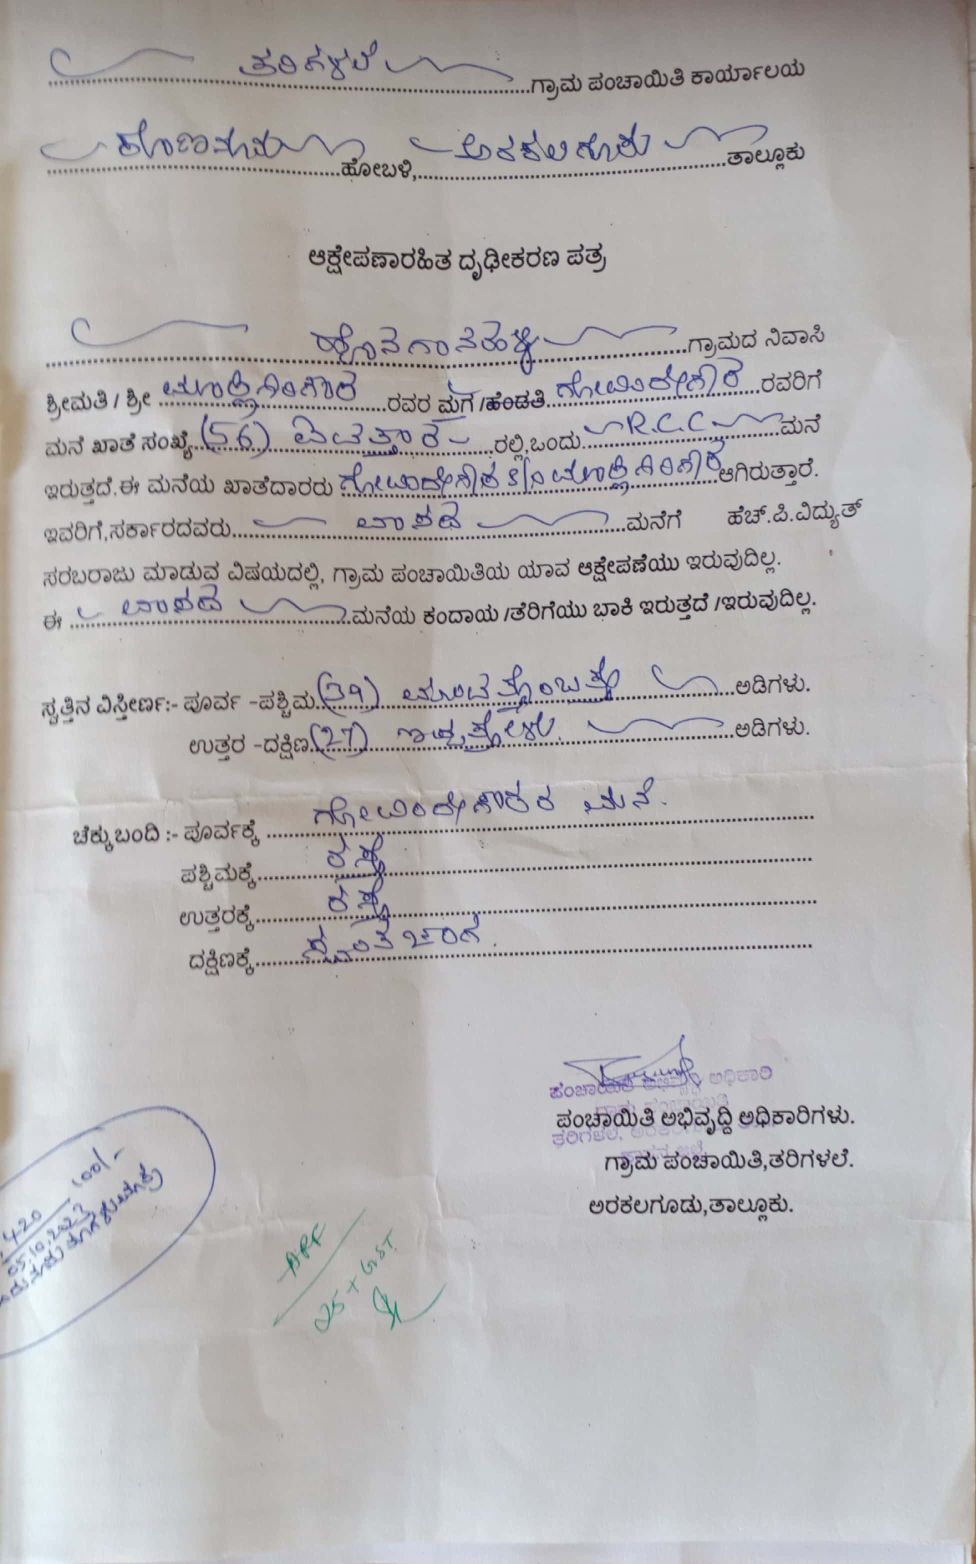 ತರಿಗಳಲೆ ಗ್ರಾಮ ಪಂಚಾಯಿತಿ ಕಾರ್ಯಾಲಯ
ಹೋಬಳಿ, ಅರಕಲಗೂಡು ತಾಲ್ಲೂಕು
ಆಕ್ಷೇಪಣಾರಹಿತ ದೃಢೀಕರಣ ಪತ್ರ
ಗ್ರಾಮದ ನಿವಾಸಿ
ಶ್ರೀಮತಿ / ಶ್ರೀ ರವರ ಮಗ /ಹೆಂಡತಿ ರವರಿಗೆ
ಮನೆ ಖಾತೆ ಸಂಖ್ಯೆ (56) ಐವತ್ತಾರ ರಲ್ಲಿ,ಒಂದು R.C.C ಮನೆ
ಇರುತ್ತದೆ.ಈ ಮನೆಯ ಖಾತೆದಾರರು S/o ಆಗಿರುತ್ತಾರೆ.
ಇವರಿಗೆ,ಸರ್ಕಾರದವರು ವಾಸದ ಮನೆಗೆ ಹೆಚ್.ಪಿ.ವಿದ್ಯುತ್
ಸರಬರಾಜು ಮಾಡುವ ವಿಷಯದಲ್ಲಿ, ಗ್ರಾಮ ಪಂಚಾಯಿತಿಯ ಯಾವ ಆಕ್ಷೇಪಣೆಯು ಇರುವುದಿಲ್ಲ.
ಈ ವಾಸದ ಮನೆಯ ಕಂದಾಯ /ತೆರಿಗೆಯು ಬಾಕಿ ಇರುತ್ತದೆ /ಇರುವುದಿಲ್ಲ.
ಸ್ವತ್ತಿನ ವಿಸ್ತೀರ್ಣ:- ಪೂರ್ವ -ಪಶ್ಚಿಮ (39) ಮೂವತ್ತೊಂಬತ್ತು ಅಡಿಗಳು.
ಉತ್ತರ -ದಕ್ಷಿಣ (27) ಇಪ್ಪತ್ತೇಳು ಅಡಿಗಳು.
ಚೆಕ್ಕುಬಂದಿ :- ಪೂರ್ವಕ್ಕೆ ಗೋವಿಂದೇಗೌಡರ ಮನೆ.
ಪಶ್ಚಿಮಕ್ಕೆ ರಸ್ತೆ
ಉತ್ತರಕ್ಕೆ ರಸ್ತೆ
ದಕ್ಷಿಣಕ್ಕೆ ಸ್ವಂತ ಜಾಗ.
ಪಂಚಾಯಿತಿ ಅಭಿವೃದ್ಧಿ ಅಧಿಕಾರಿ
ಪಂಚಾಯಿತಿ ಅಭಿವೃದ್ದಿ ಅಧಿಕಾರಿಗಳು.
ಗ್ರಾಮ ಪಂಚಾಯಿತಿ,ತರಿಗಳಲೆ.
ಅರಕಲಗೂಡು,ತಾಲ್ಲೂಕು.
420 100/-
05.10.2023
25 + GST